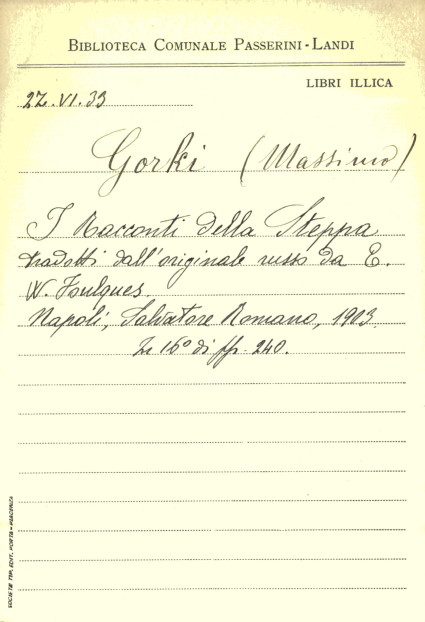 BIBLIOTECA COMUNALE PASSERINI-LANDI
LIBRI ILLICA
22.VI.33
Gorki (Massimo)
I Racconti della Steppa
tradotti dall'originale russo da E.
W. Foulques.
Napoli, Salvatore Romano, 1903
In 16° di pp. 240.
SOCIETÀ TIP. EDIT. PORTA - PIACENZA